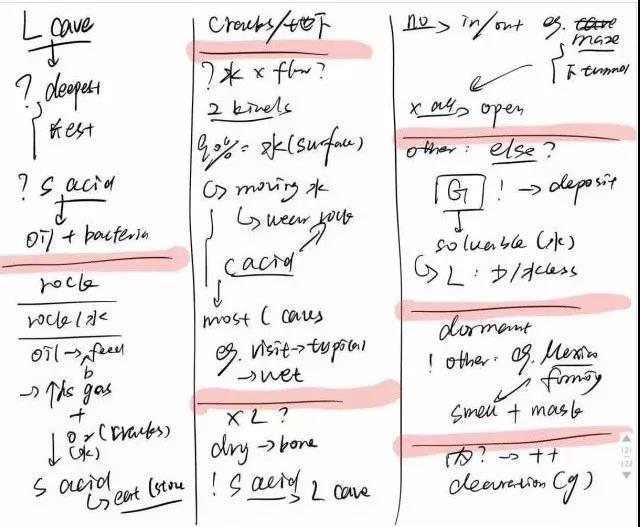 L cave
? deepest
长est
? S acid
oil + bacteria
rock
rock/水
oil → feed
b
→ ↑ls gas
+
O₂ (cracks)
(水)
S acid
↳ eat (stone
cracks/地下
? 水 x flow?
2 kinds
90% = 水 (surface)
↳ moving 水
↳ wear rock
c acid
most C caves
eg. visit → typical
→ wet
x L ?
dry → bone
! S acid → L cave
no → in/out eg. cave
maze
tunnel
x any → open
other: else?
G ! → deposit
soluable (水)
↳ L : 水less
dormant
! other: eg. Mexico
forming
smell + mask
? → ++
decoration (g)
121
122